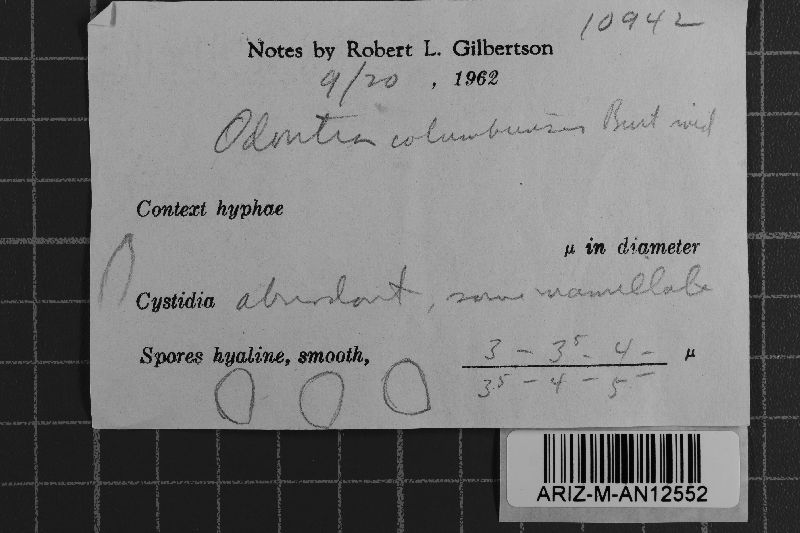 10942
Notes by Robert L. Gilbertson
9/20, 1962
Odontia columbiensis Burt
Context hyphae
μ in diameter
Cystidia abundant, some mamillate
Spores hyaline, smooth, 3 - 3⁵ - 4 - μ
3⁵ - 4 - 5 -
ARIZ-M-AN12552